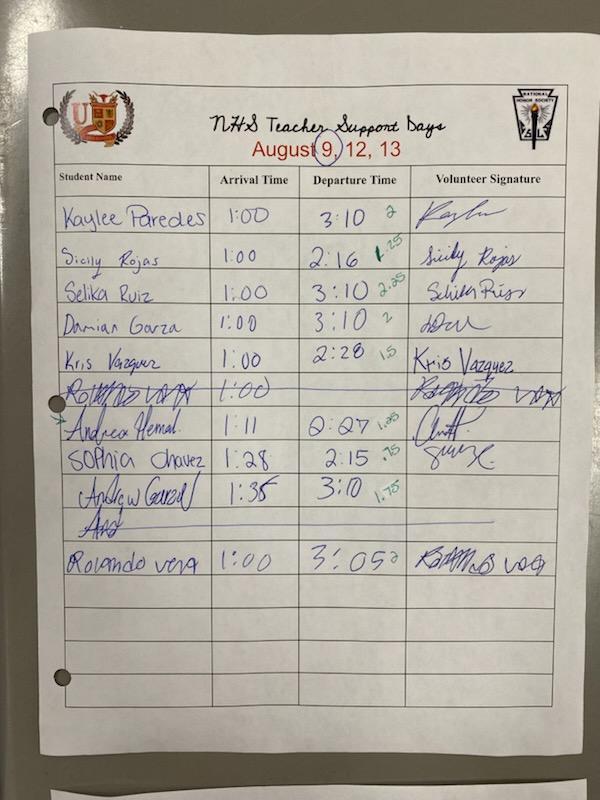 NHS Teacher Support Days
August 9, 12, 13
Student Name Arrival Time Departure Time Volunteer Signature
Kaylee Paredes 1:00 3:10 2
Sicily Rojas 1:00 2:16 1.25 Sicily Rojas
Selika Ruiz 1:00 3:10 2.25 Selika Ruiz
Damian Garza 1:00 3:10 2
Kris Vazquez 1:00 2:28 1.5 Kris Vazquez
1:00
Andrea 1:11 2:27 1.25
Sophia Chavez 1:28 2:15 .75
Andrew 1:35 3:10 1.75
And
Rolando vera 1:00 3:05 2
NATIONAL
HONOR SOCIETY
U